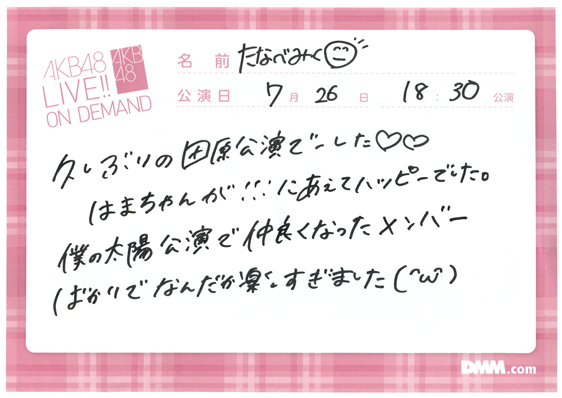 AKB48
LIVE!!
ON DEMAND
AKB
48
名前 たなべみく
公演日 7月26日 18:30公演
久しぶりの田原公演でーした♡♡
はまちゃんが!!!にあえてハッピーでした。
僕の太陽公演で仲良くなったメンバー
ばかりでなんだか楽しすぎました(^ω^)
DMM.com